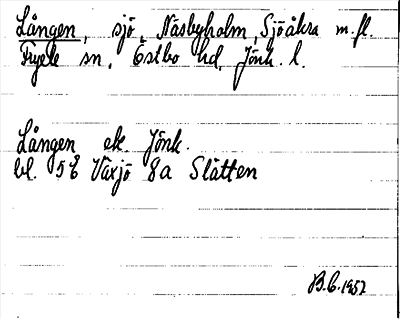 Lången, sjö, Näsbyholm, Sjöåkra m.fl.
Fryele sn, Östbo hd, Jönk. l.
Lången ek. Jönk.
bl. 5E Växjö 8a Slätten
B.C. 1957